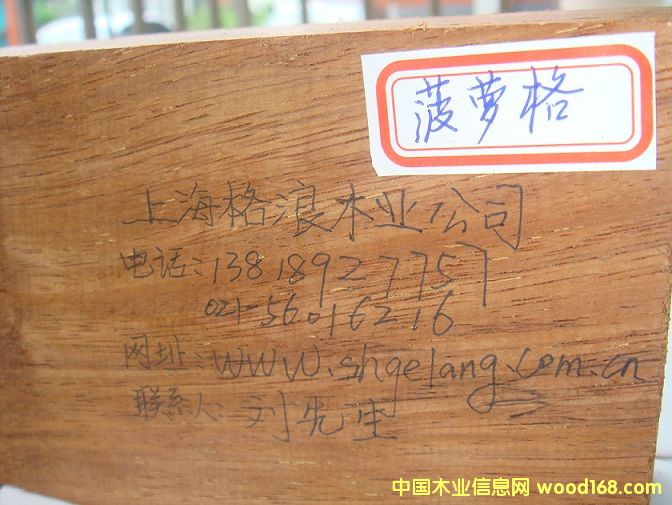 菠萝格
上海格浪木业公司
电话:13818927757
021-56016216
网址:www.shgelang.com.cn
联系人:刘先生
中国木业信息网 wood168.com